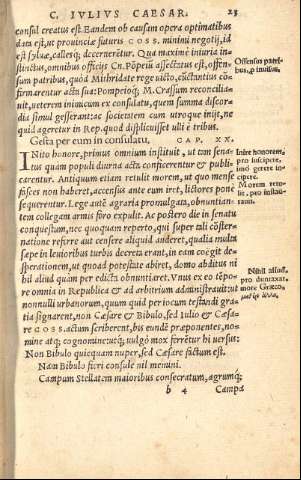 C. IVLIVS CAESAR. 23
consul creatus est. Eandem ob causam opera optimatibus
data est, ut prouinciæ futuris COSS. minimi negotij, id
est syluæ, callesq; decernerētur. Qua maximè iniuria in-
stinctus, omnibus officijs Cn. Pōpeiū assectatus est, offen-
sum patribus, quòd Mithridate rege uicto, cūctantius cō-
firmarentur acta sua: Pompeioq; M. Crassum reconcilia-
uit, ueterem inimicum ex consulatu, quem summa discor-
dia simul gesserant: ac societatem cum utroque inijt, ne
quid ageretur in Rep. quod displicuisset ulli è tribus.
Offensus patri-
bus,
Gesta per eum in consulatu. CAP. XX.
INito honore, primus omnium instituit, ut tam sena-
tus quàm populi diurna acta conficerentur & publi-
carentur. Antiquum etiam retulit morem, ut quo mense
fasces non haberet, accensus ante eum iret, lictores ponè
sequerentur. Lege autē agraria promulgata, obnuntian-
tem collegam armis foro expulit. Ac postero die in senatu
conquestum, nec quoquam reperto, qui super tali cōster-
natione referre aut censere aliquid auderet, qualia multa
sæpe in leuioribus turbis decreta erant, in eam coëgit de-
sperationem, ut quoad potestate abiret, domo abditus ni
hil aliud quàm per edicta obnuntiaret. Vnus ex eo tēpo-
re omnia in Republica & ad arbitrium administrauit: ut
nonnulli urbanorum, quum quid per iocum testandi gra-
tia signarent, non Cæsare & Bibulo, sed Iulio & Cæsa-
re COSS. actum scriberent, bis eundē præponentes, no-
mine atq; cognomine: utq; uulgò mox ferrētur hi uersus:
Inire honorem,
pro suscipere,
imò gerere in-
cipere.
Morem retu-
lit, pro instau-
rauit.
Nihil aliud,
pro duntaxat,
more Græco,
Non Bibulo quicquam nuper, sed Cæsare factum est.
Nam Bibulo fieri consule nil memini.
Campum Stellatem maioribus consecratum, agrumq;
b 4 Campa